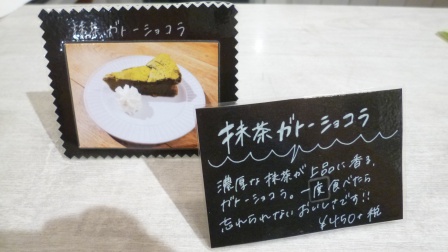 抹茶ガトーショコラ
抹茶ガトーショコラ
濃厚な抹茶が上品に香る、
ガトーショコラ。一度食べたら
忘れられないおいしさです!!
¥450+税